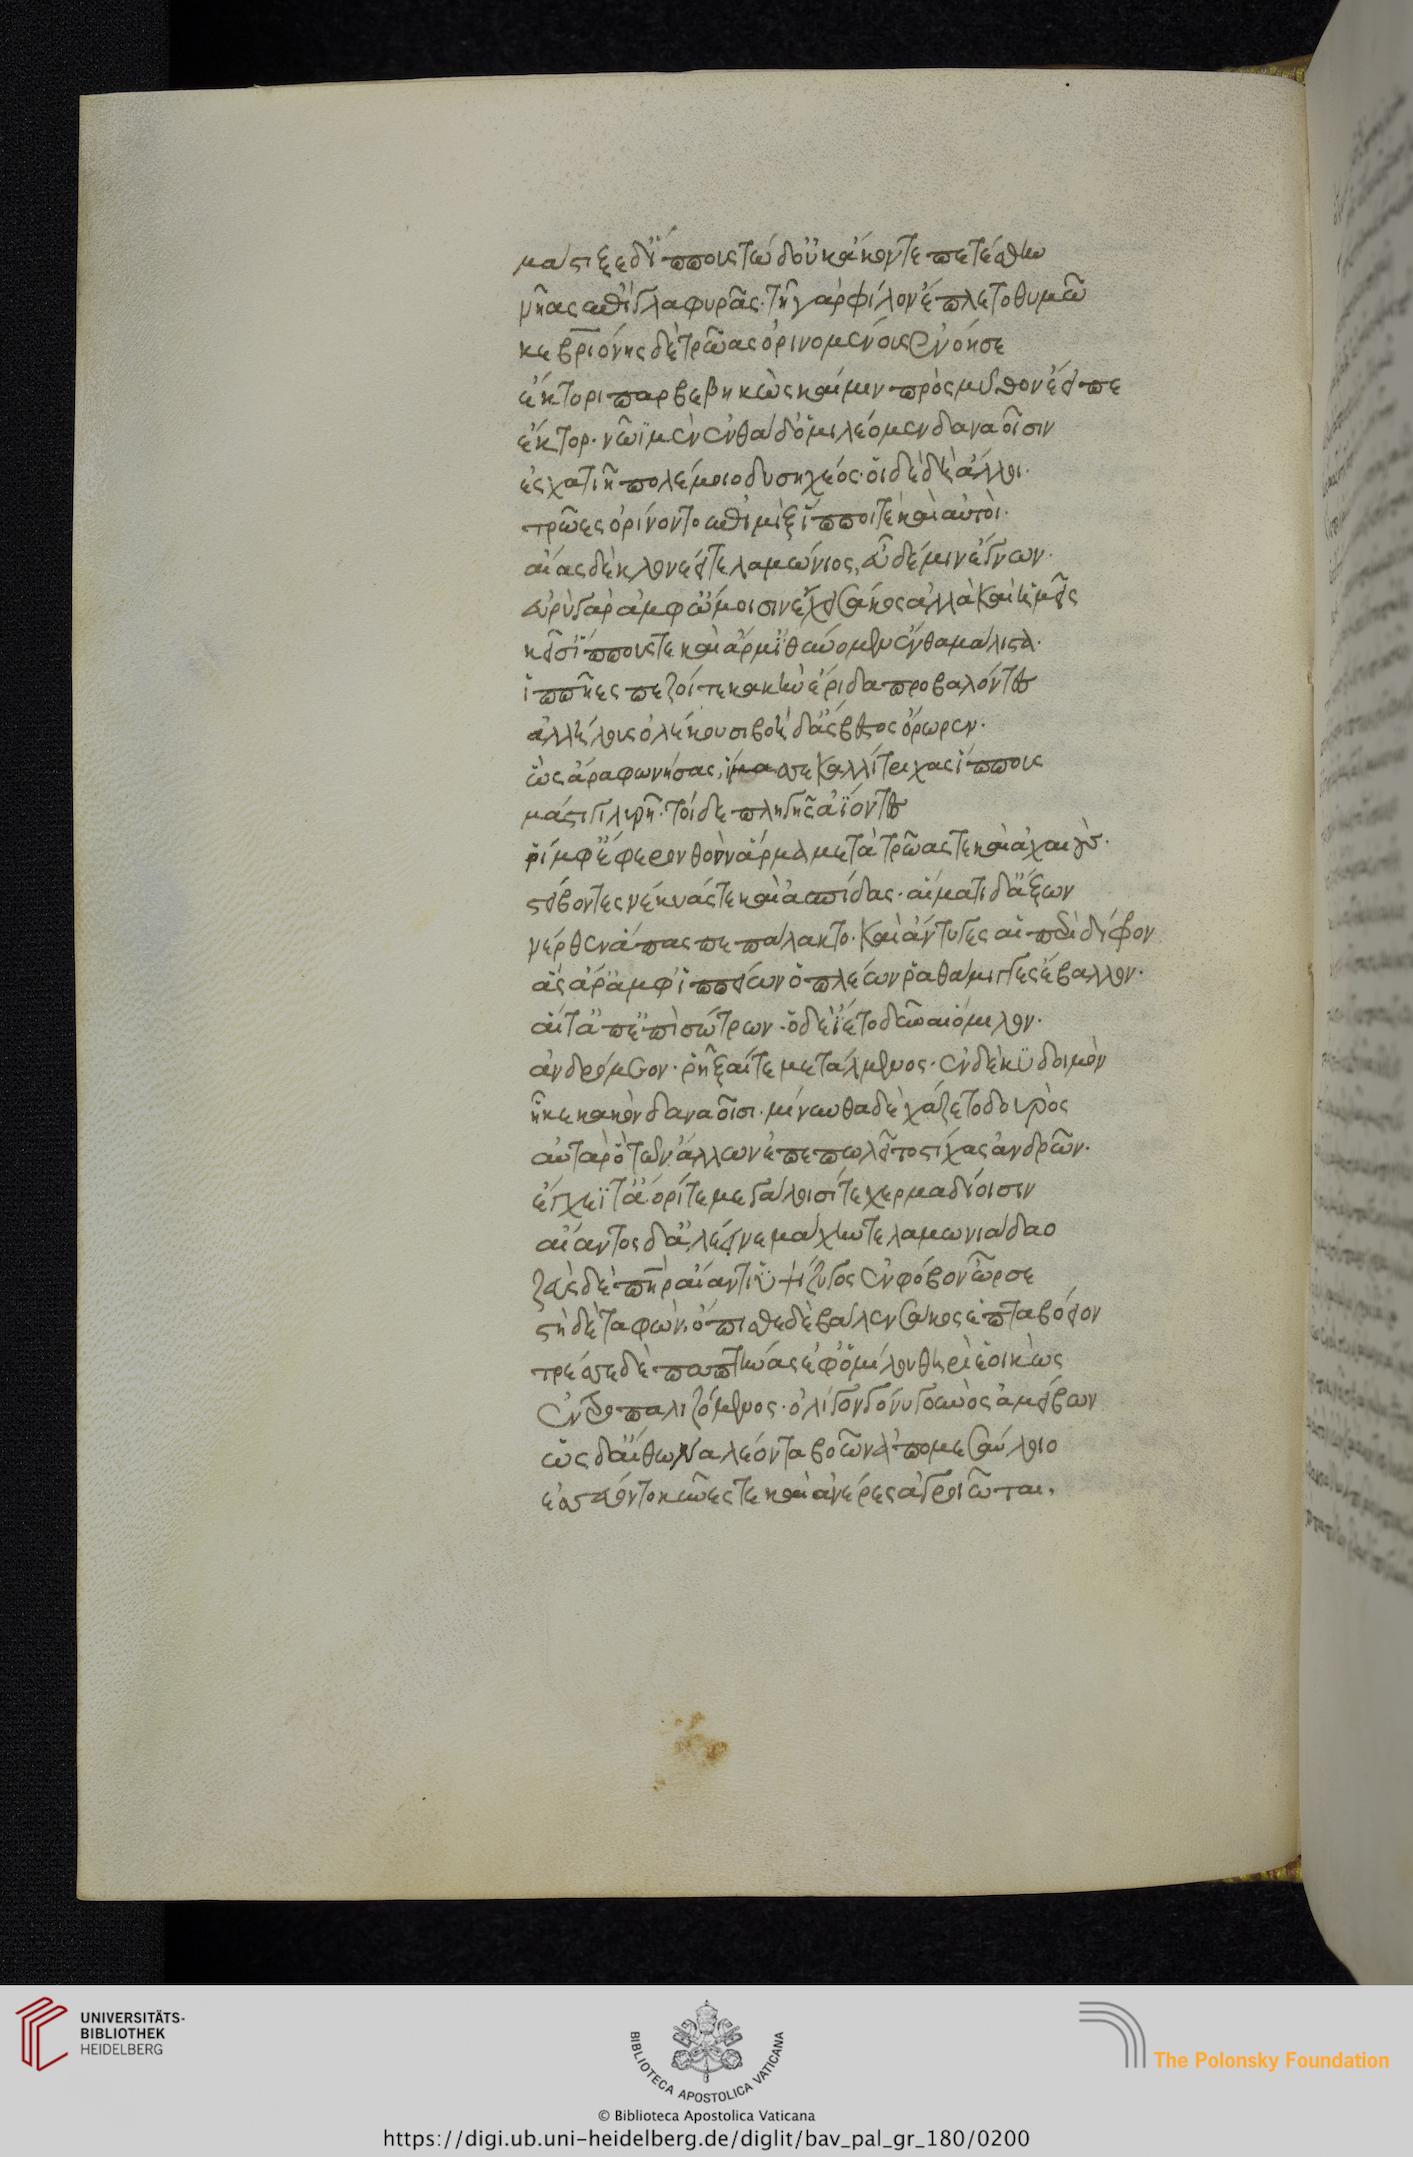 μάστιξεν δ' ἵππους τὼ δ' οὐκ ἄκοντε πετέσθην
νῆας ἐπὶ γλαφυράς· τῇ γὰρ φίλον ἔπλετο θυμῶ
κεβριόνης δὲ τρῶας ὀρινομένους ἐνόησε
ἕκτορι παρβεβηκὼς καί μιν πρὸς μῦθον ἔειπε
ἕκτορ· νῶϊ μὲν ἐνθάδ' ὁμιλέομεν δαναοῖσιν
ἐσχατιῆ πολέμοιο δυσηχέος· οἱ δὲ δὴ ἄλλοι·
τρῶες ὀρίνονται ἐπιμὶξ ἵπποι τε καὶ αὐτοί·
αἴας δὲ κλονέει τελαμώνιος, εὖ δέ μιν ἔγνων·
εὐρὺ γὰρ ἀμφ' ὤμοισιν ἔχει σάκος ἀλλὰ καὶ ἡμεῖς
κεῖσ' ἵππους τε καὶ ἅρμ' ἰθύνομεν ἔνθα μάλιστα·
ἱππῆες πεζοί τε κακὴν ἔριδα προβαλόντες
ἀλλήλους ὀλέκουσι βοὴ δ' ἄσβεστος ὄρωρεν·
ὣς ἄρα φωνήσας, ἵμασε καλλίτριχας ἵππους
μάστιγι λιγυρῆ· τοὶ δὲ πληγῆς ἀΐοντες
ῥίμφ' ἔφερον θοὸν ἅρμα μετὰ τρῶας τε καὶ ἀχαιούς·
στείβοντες νέκυάς τε καὶ ἀσπίδας· αἵματι δ' ἄξων
νέρθεν ἅπας πεπάλακτο· καὶ ἄντυγες αἳ περὶ δίφρον
ἃς ἄρ' ἀμφ' ἱππείων ὁπλέων ῥαθάμιγγες ἔβαλλον·
αἵ τ' ἀπ' ἐπισσώτρων· ὁ δὲ ἵετο δῦναι ὅμιλον·
ἀνδρόμεον· ῥῆξαί τε μετάλμενος· ἐν δὲ κυδοιμὸν
ἧκε κακὸν δαναοῖσι· μίνυνθα δὲ χάζετο δουρὸς
αὐτὰρ ὃ τῶν ἄλλων ἐπεπωλεῖτο στίχας ἀνδρῶν·
ἔγχεΐ τ' ἄορί τε μεγάλοισί τε χερμαδίοισιν
αἴαντος δ' ἀλέεινε μάχην τελαμωνιάδαο
ζεὺς δὲ πατὴρ αἴανθ' ὑψίζυγος ἐν φόβον ὦρσε
στῆ δὲ ταφών· ὄπισθε δὲ βάλεν σάκος ἑπταβόειον
τρέσσε δὲ παπτήνας ἐφ' ὁμίλου θηρὶ ἐοικὼς
ἐντροπαλιζόμενος· ὀλίγον γόνυ γουνὸς ἀμείβων
ὡς δ' αἴθωνα λέοντα βοῶν ἀπὸ μεσαύλοιο
ἐσσεύοντο κύνες τε καὶ ἀνέρες ἀγροιῶται.
UNIVERSITÄTS-
BIBLIOTHEK
HEIDELBERG
BIBLIOTECA APOSTOLICA VATICANA
The Polonsky Foundation
© Biblioteca Apostolica Vaticana
https://digi.ub.uni-heidelberg.de/diglit/bav_pal_gr_180/0200